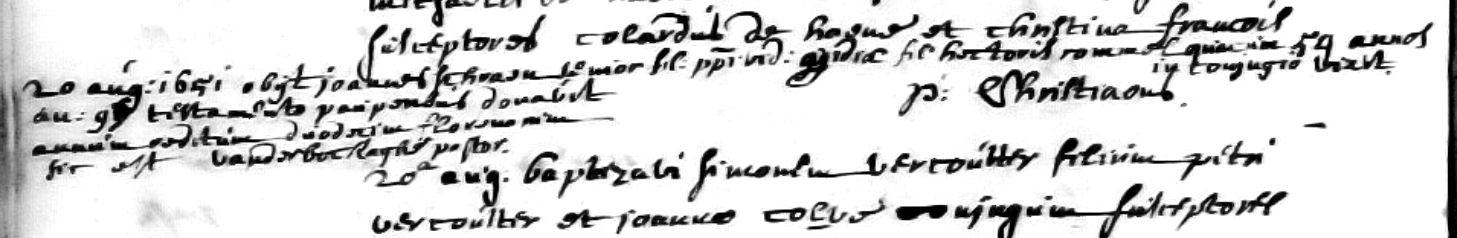 susceptores colardus de hague et christina francois
20 aug: 1651 obyt joannes schraen senior fil: ppi vid: egidiæ fil hectoris rommel quacum 59 annos
in conjugio vixit.
an: 95 testamento pauperibus donavit
p: Christianus.
annuum reditum duodecim florenorum
sic est vanderbeck pastor.
20ª aug. baptizavi simonem vercoutter filium petri
vercoutter et joannæ conjugum susceptores